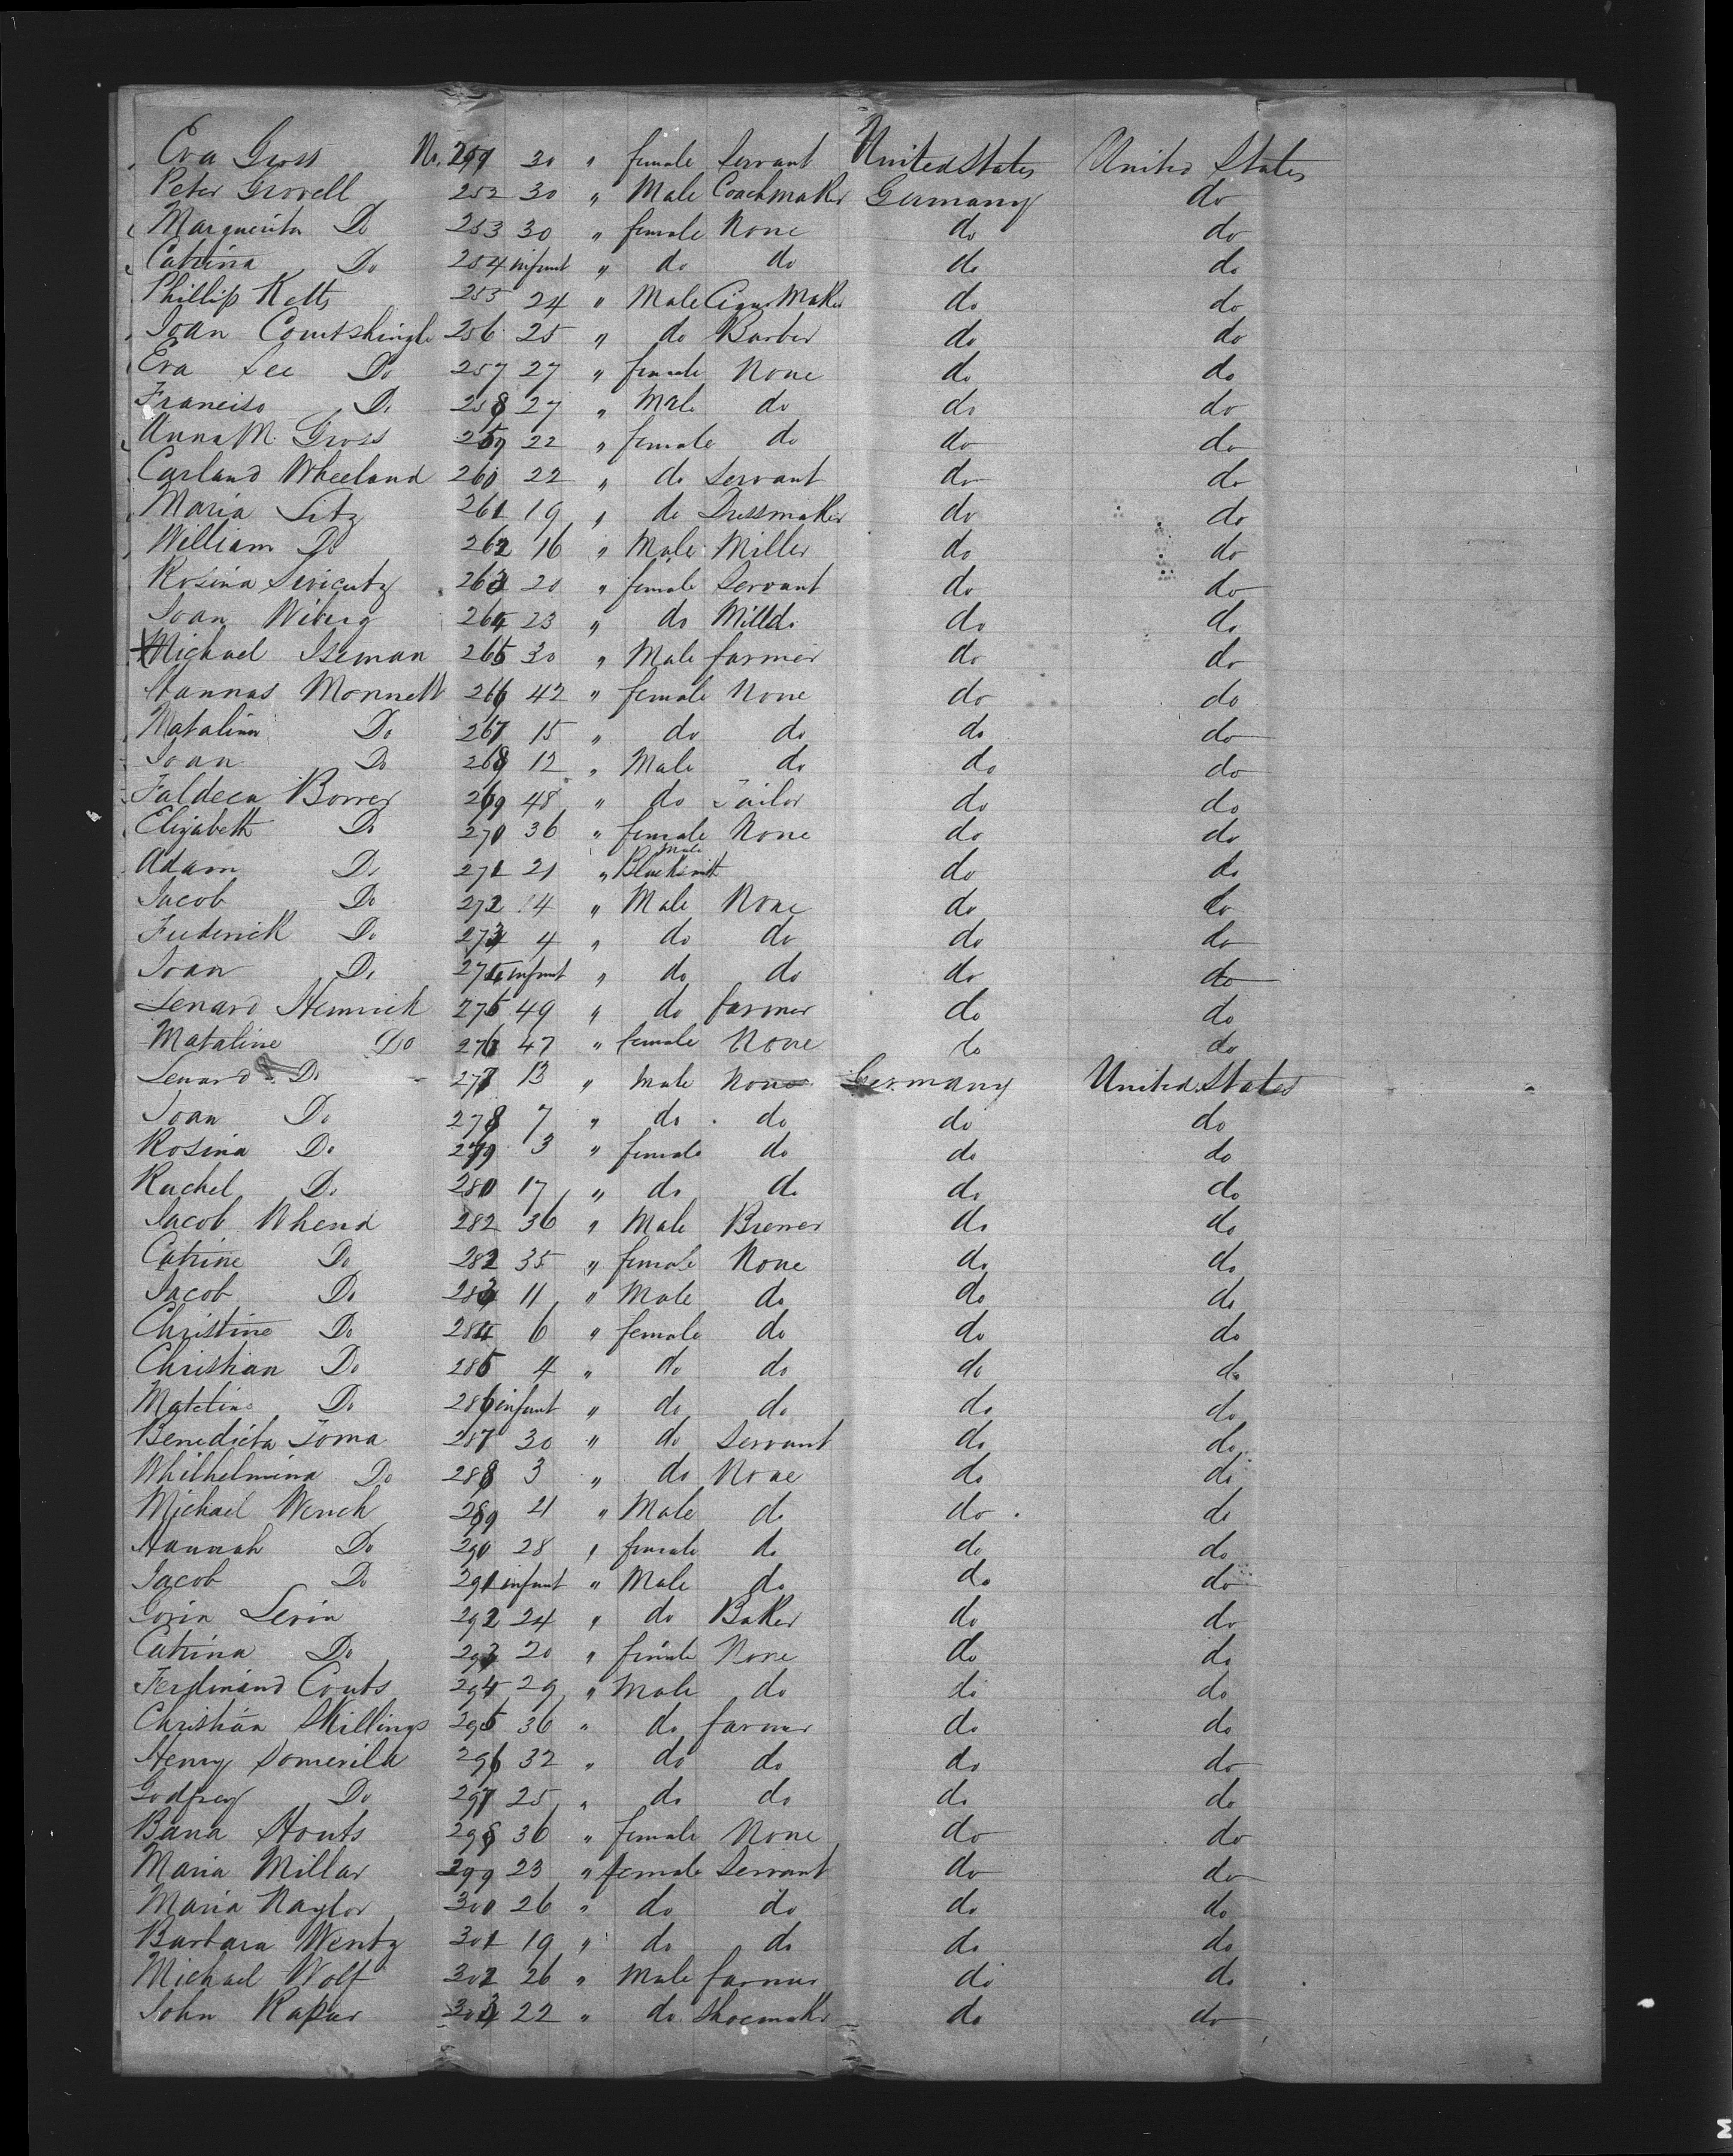 Eva Gross No. 251 30 " female Servant United States United States
Peter Grovell 252 30 " Male Coachmaker Germany do
Marguerita Do 253 30 " female None do do
Catrina Do 254 infant " do do do do
Phillip Kelts 255 24 " Male Cigar Maker do do
Joan Courtshingle 256 25 " do Barber do do
Eva Lee Do 257 27 " female None do do
Francisa Do 258 27 " Male do do do
Anna M. Gross 259 22 " female do do do
Carland Wheeland 260 22 " do Servant do do
Maria Litz 261 19 " do Dressmaker do do
William Do 262 16 " Male Miller do do
Rosina 263 20 " female Servant do do
Joan Wiberg 264 23 " do do do
Michael Iseman 265 30 " Male farmer do do
Hannas Monnett 266 42 " female None do do
Matalina Do 267 15 " do do do do
Joan Do 268 12 " Male do do do
Faldeca Borrer 269 48 " do Tailor do do
Elizabeth Do 270 36 " female None do do
Adam Do 271 21 " Male Blacksmith do do
Jacob Do 272 14 " Male None do do
Frederick Do 273 4 " do do do do
Joan Do 274 infant " do do do do
Lenard Hemrick 275 49 " do farmer do do
Mataline Do 276 47 " female None do do
Lenard Do 277 13 " Male None Germany United States
Joan Do 278 7 " do do do do
Rosina Do 279 3 " female do do do
Rachel Do 280 17 " do do do do
Jacob Whend 282 36 " Male Brewer do do
Catrine Do 282 35 " female None do do
Jacob Do 283 11 " Male do do do
Christine Do 284 6 " female do do do
Christian Do 285 4 " do do do do
Do 286 infant " do do do do
Benedicta Toma 287 30 " do Servant do do
Whilhelmina Do 288 3 " do None do do
Michael Wench 289 21 " Male do do do
Hannah Do 290 28 " female do do do
Jacob Do 291 infant " Male do do do
Levin 292 24 " do Baker do do
Catrina Do 293 20 " female None do do
Ferdinand Couts 294 29 " Male do do do
Christian Skillings 295 36 " do farmer do do
Henry Somerila 296 32 " do do do do
Godfrey Do 297 25 " do do do do
Bana Houts 298 36 " female None do do
Maria Millar 299 23 " female Servant do do
Maria Naylor 300 26 " do do do do
Barbara Wentz 301 19 " do do do do
Michael Wolf 302 26 " Male farmer do do
John Rapur 303 22 " do Shoemaker do do